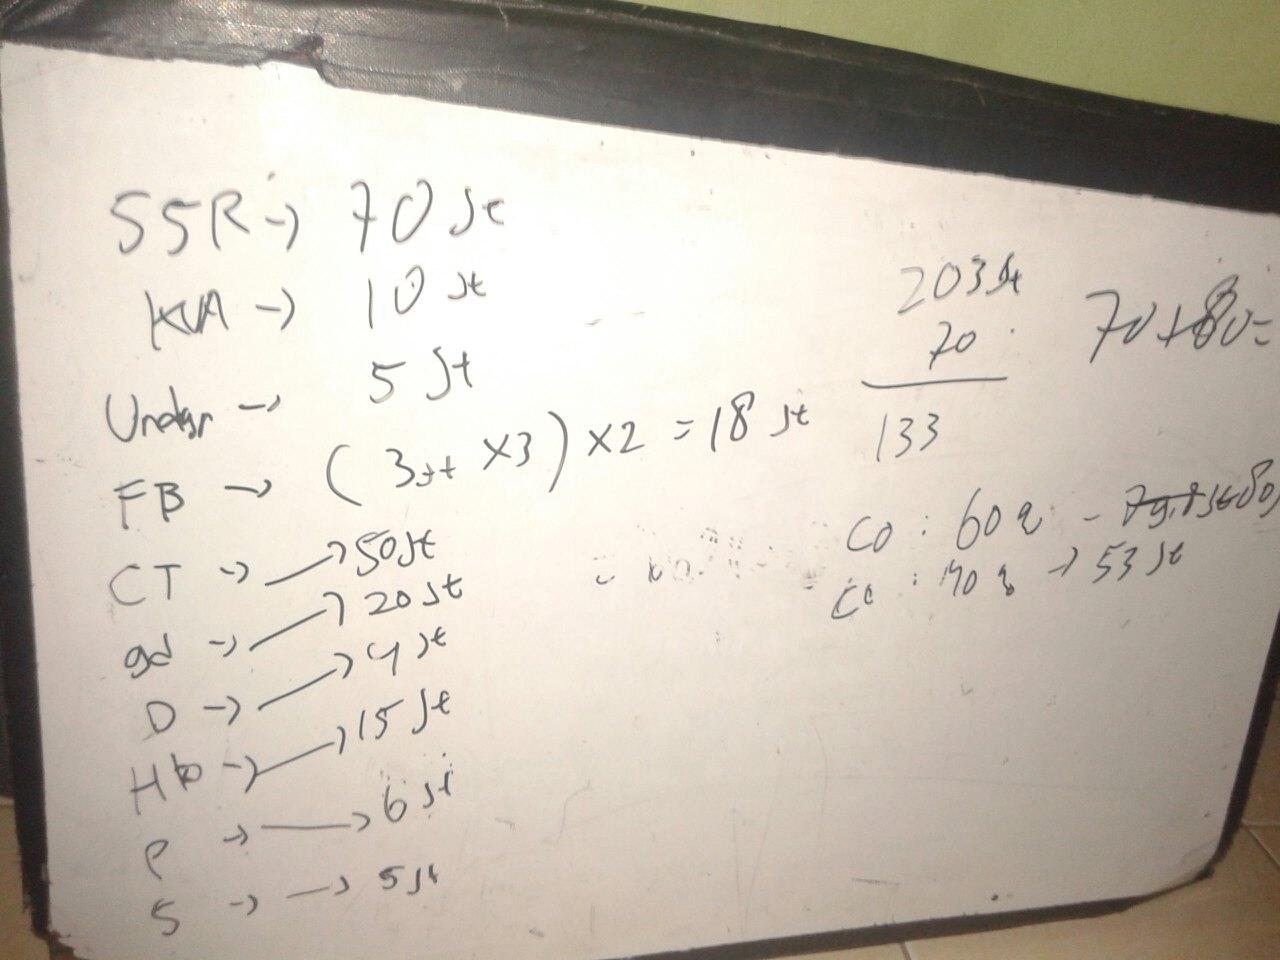 SSR → 70 Jt
KVA → 10 Jt
→ 5 Jt
FB → ( 3 Jt x 3 ) x 2 = 18 Jt
CT → → 50 Jt
gd → → 20 Jt
D → → 4 Jt
→ → 15 Jt
P → → 6 Jt
S → → 5 Jt
203 Jt
70
133
70+80=
CO : 60 -
: 40 → 53 Jt